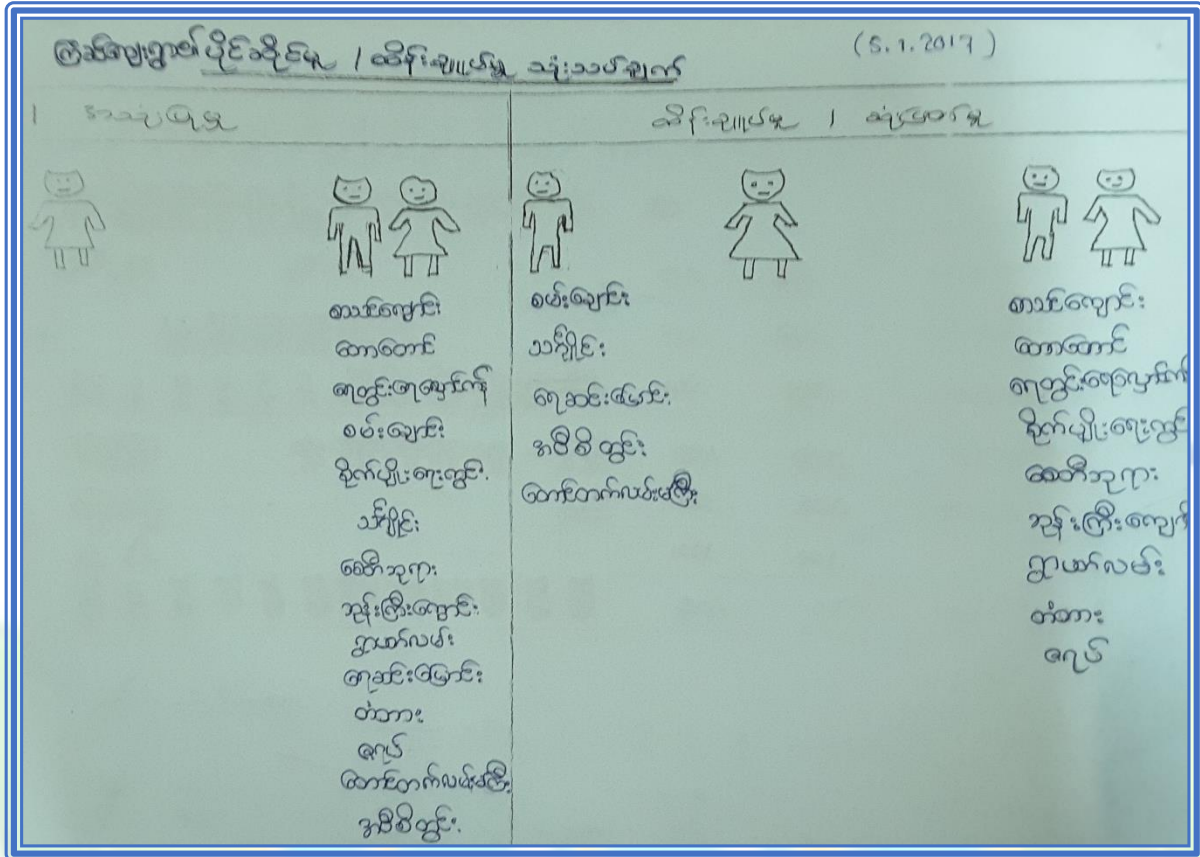 ကြံခင်းကျေးရွာ၏ ပိုင်ဆိုင်မှု / ထိန်းချုပ်မှု သုံးသပ်ချက်
(5.1.2017)
အသုံးပြုမှု
ထိန်းချုပ်မှု / ဆုံးဖြတ်မှု
စာသင်ကျောင်း
တောတောင်
ရေတွင်းရေလှောင်ကန်
စမ်းချောင်း
စိုက်ပျိုးရေးတွင်း
သင်္ချိုင်း
စေတီဘုရား
ဘုန်းကြီးကျောင်း
ရွာပတ်လမ်း
ရေဆင်းမြောင်း
တံတား
ဇရပ်
တောင်တက်လမ်းမကြီး
အဝီစိတွင်း
စမ်းချောင်း
သင်္ချိုင်း
ရေဆင်းမြောင်း
အဝီစိတွင်း
တောင်တက်လမ်းမကြီး
စာသင်ကျောင်း
တောတောင်
ရေတွင်းရေလှောင်ကန်
စိုက်ပျိုးရေးတွင်
စေတီဘုရား
ဘုန်းကြီးကျော
ရွာပတ်လမ်း
တံတား
ဇရပ်